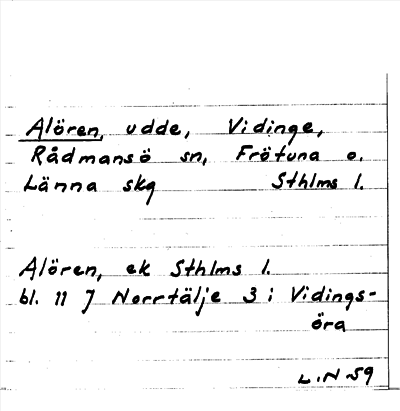 Alören, udde, Vidinge,
Rådmansö sn, Frötuna o.
Länna skg Sthlms l.
Alören, ek Sthlms l.
bl. 11 J Norrtälje 3 i Vidings-
öra
L.N 59